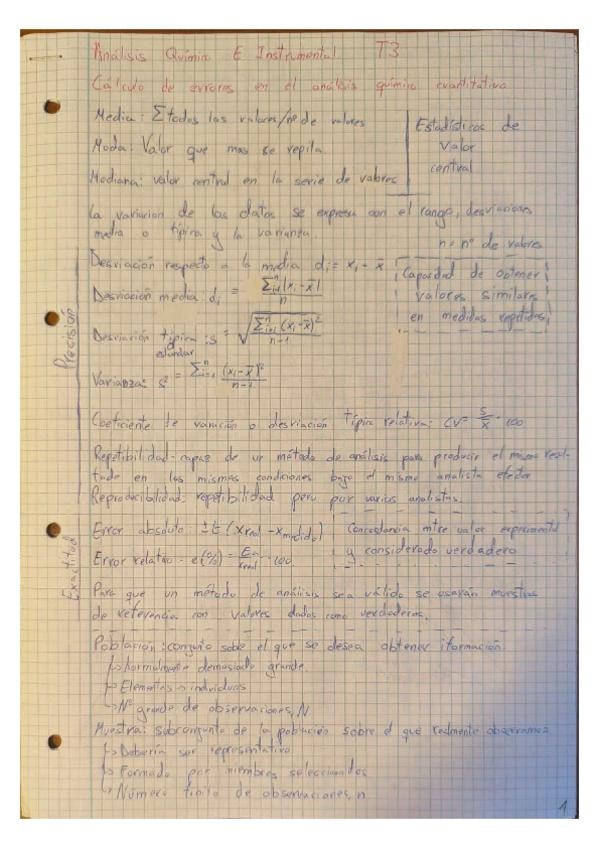 Análisis Químico E Instrumental T3
Cálculo de errores en el análisis químico cuantitativo
Media: Σ todos los valores/nº de valores
Moda: Valor que mas se repita
Mediana: valor central en la serie de valores
Estadísticos de
valor
central
La variacion de los datos se expresa con el rango, desviaciones
media o típica y la varianza.
n = nº de valores
Desviación respecto a la media di = xi - x̄
Desviación media: di = Σⁿᵢ₌₁|xi - x̄| / n
Capacidad de obtener
valores similares
en medidas repetidas
Precisión
Desviación típica : s = √(Σⁿᵢ₌₁(xi - x̄)² / n-1)
o
estándar
Varianza: s² = Σⁿᵢ₌₁ (xi - x̄)² / n-1
Coeficiente de variación o desviación típica relativa: CV = s/x̄ · 100
Repetibilidad- capaz de un método de análisis para producir el mismo resul-
tado en las mismas condiciones bajo el mismo analista
Reproducibilidad: repetibilidad pero por varios analistas.
Exactitud
Error absoluto: (Xreal - Xmedido)
Error relativo - e(%) = Ea/Xreal · 100
Concordancia entre valor experimental
y considerado verdadero
Para que un método de análisis sea válido se usarán muestras
de referencia con valores dados como verdaderos.
Población: conjunto sobe el que se desea obtener iformación.
↳ Normalmente demasiado grande
↳ Elementos → individuos
↳ Nº grande de observaciones, N
Muestra: subconjunto de la población sobre el que realmente observamos
↳ Debería ser representativo
↳ Formado por miembros seleccionados
↳ Número finito de observaciones, n
1